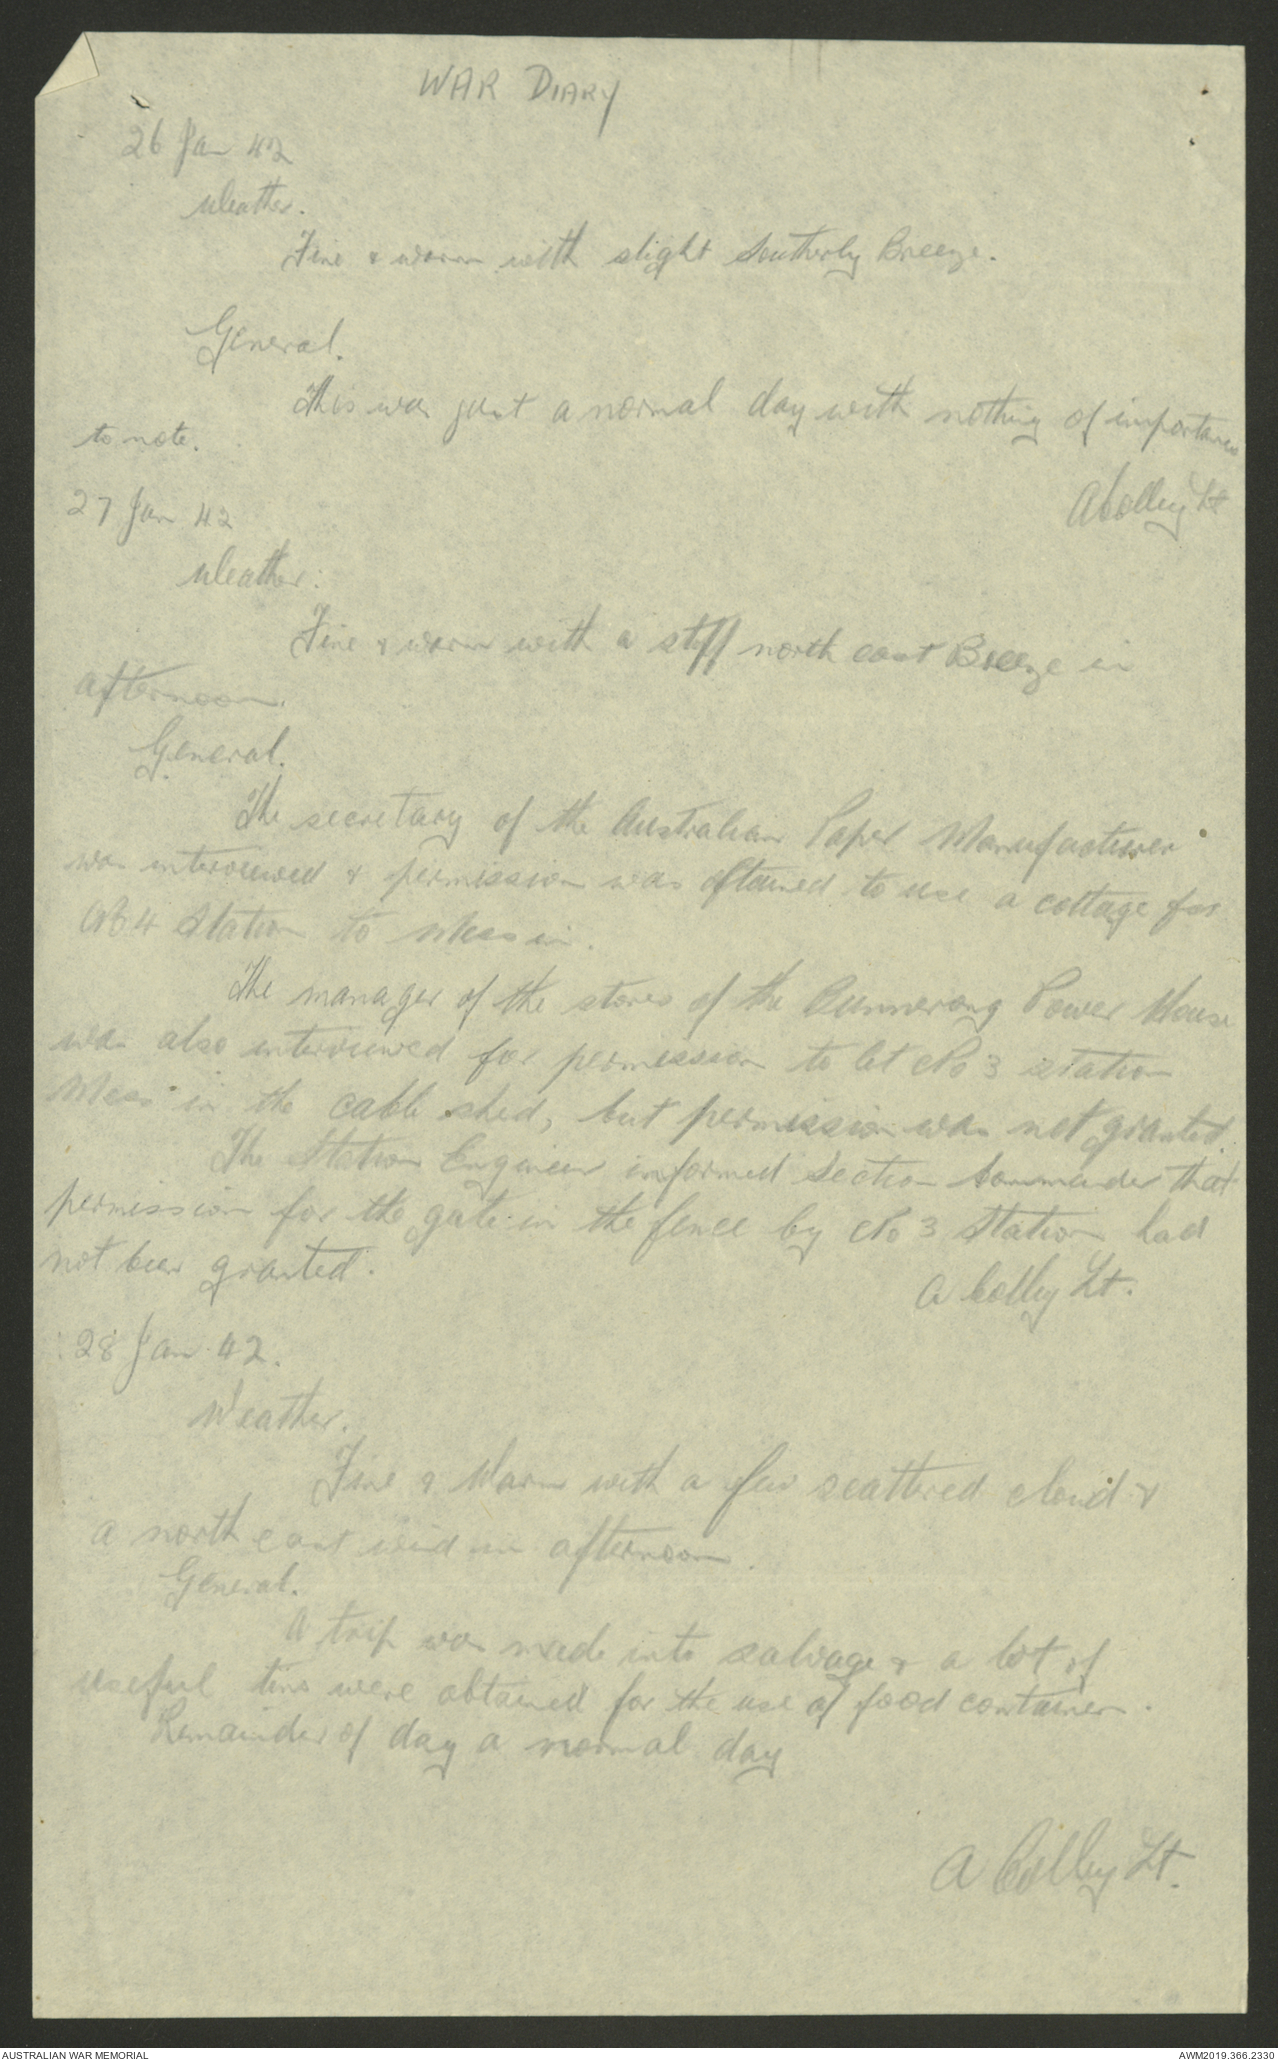 WAR DIARY
26 Jan 42
Weather.
Fine & warm with slight Southerly Breeze.
General.
This was just a normal day with nothing of importance
to note.
A Colley Lt
27 Jan 42
Weather:
Fine & warm with a stiff north east Breeze in
afternoon.
General.
The secretary of the Australian Paper Manufacturer
was interviewed & permission was obtained to use a cottage for
No 4 Station to Mess in.
The manager of the stores of the Bunnerong Power House
was also interviewed for permission to let No 3 station
Mess in the cable shed, but permission was not granted.
The Station Engineer informed Section Commander that
permission for the gate in the fence by No 3 Station had
not been granted.
A Colley Lt.
28 Jan 42.
Weather.
Fine & Warm with a few scattered cloud &
a north east wind in afternoon.
General.
A trip was made into salvage & a lot of
useful tins were obtained for the use of food container.
Remainder of day a normal day
A Colley Lt.
AUSTRALIAN WAR MEMORIAL
AWM2019.366.2330